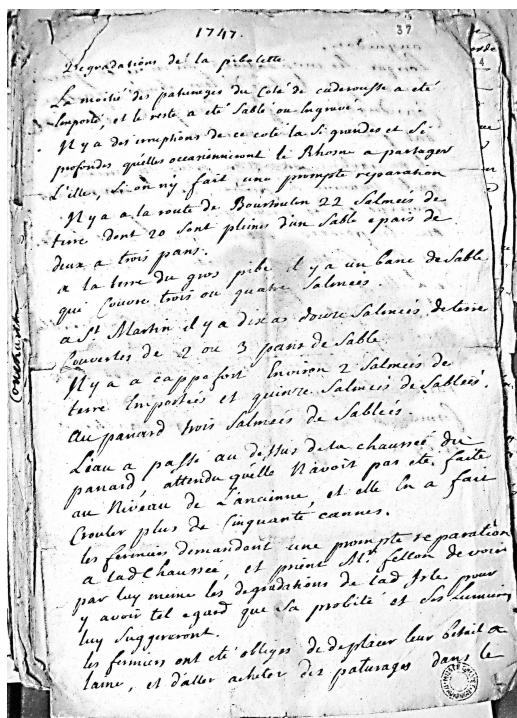 1747.
37
Degradations de la pibolette
La moitié des paturages du Coté de caderousse a eté
Emporté, et le reste a eté Sablé ou Engravé
Il y a des irruptions de ce coté la Si grandes et Si
profondes quelles occasionneront le Rhosne a partager
L'isle, Si on n'y fait une prompte reparation
Il y a a la route de Bourdoulen 22 Salmeés de
terre dont 20 Sont pleines d'un Sable epais de
deux a trois pans.
a la terre du gros pibe il y a un banc de Sable
que Couvre trois ou quatre Salmeés.
a St Martin il y a dix a douze Salmeés de terre
Couvertes de 2 ou 3 pans de Sable
Il y a a cappofort Environ 2 Salmeés de
terre Emportées et quinze Salmeés de Sableés.
au panard trois Salmeés de Sableés.
L'eau a passé au dessus de la chausseé du
panard, attendu qu'elle N'avoit pas eté faite
au Niveau de L'ancienne, et elle En a fait
Crouler plus de Cinquante cannes.
les fermiers demandent une prompte reparation
a lad Chausseé, et prient Mr. fellon de voir
par luy meme les degradations de lad Isle pour
y avoir tel egard que Sa probité et Ses Lumieres
luy Suggereront.
les fermiers ont eté obligés de deplacer leur betail a
laine, et d'aller acheter des paturages dans le